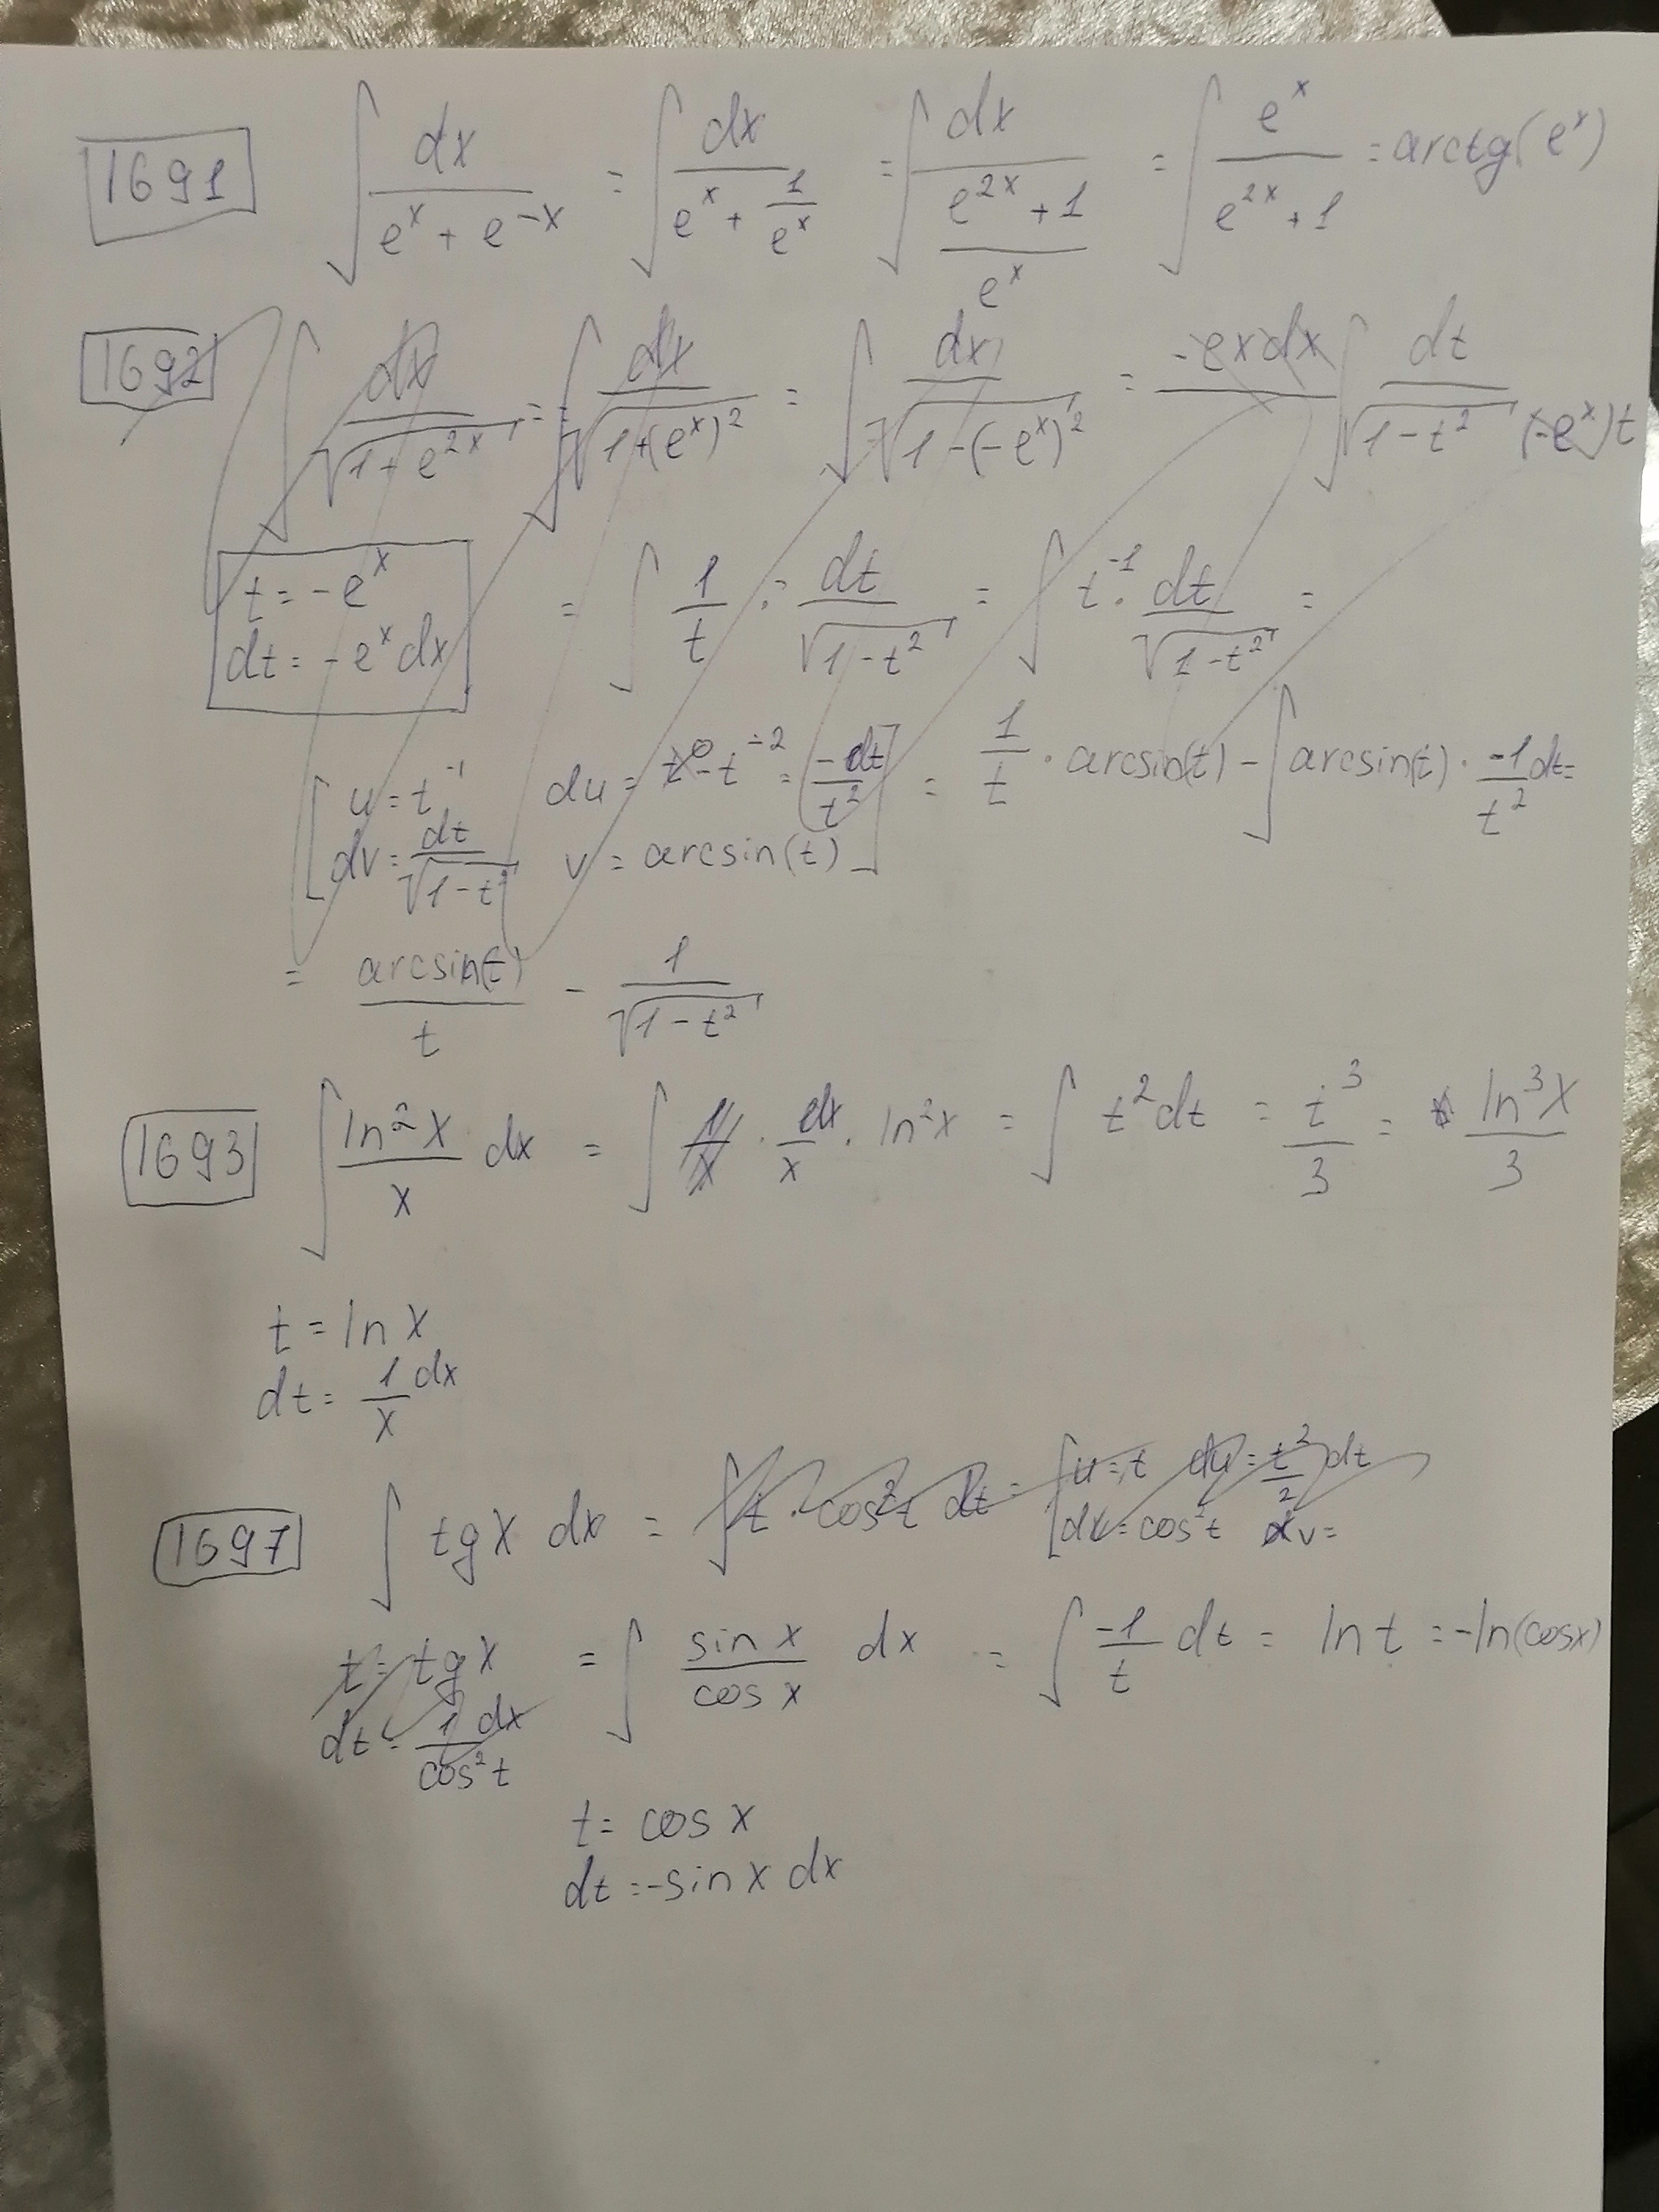 1691 ∫ dx/(e^x + e^-x) = ∫ dx/(e^x + 1/e^x) = ∫ dx/((e^2x + 1)/e^x) = ∫ e^x/(e^2x + 1) = arctg(e^x)
1692 ∫ dx/√(1+e^2x) = ∫ dx/√(1+(e^x)^2) = ∫ dx/√(1-(-e^x)^2) = -exdx ∫ dt/(√(1-t^2) (-e^x)t
t = -e^x
dt = -e^x dx
= ∫ 1/t · dt/√(1-t^2) = ∫ t^-1 · dt/√(1-t^2) =
[u = t^-1 du = -t^-2 = -dt/t^2
dv = dt/√(1-t^2) v = arcsin(t)] = 1/t · arcsin(t) - ∫ arcsin(t) · -1/t^2 dt =
= arcsin(t)/t - 1/√(1-t^2)
1693 ∫ ln^2 x/x dx = ∫ 1/x · dx/x · ln^2 x = ∫ t^2 dt = t^3/3 = ln^3 x/3
t = ln x
dt = 1/x dx
1697 ∫ tg x dx = ∫ t · cos^2 t dt = [u = t du = t^2/2 dt
dv = cos^2 t v =
t = tg x
dt = 1/cos^2 t dx
= ∫ sin x/cos x dx = ∫ -1/t dt = ln t = -ln(cosx)
t = cos x
dt = -sin x dx